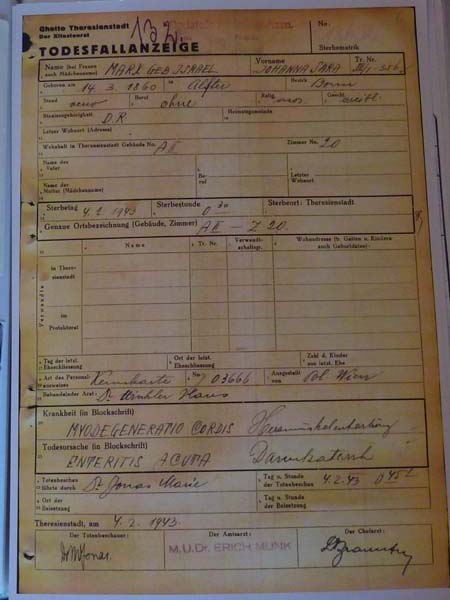 Ghetto Theresienstadt
Der Ältestenrat
TODESFALLANZEIGE
No.
Sterbematrik
Name (bei Frauen auch Mädchenname) MARX GEB ISRAEL Vorname JOHANNA SARA Tr. Nr.
Geboren am 14. 3. 1860 in Bezirk Bonn
Stand Beruf ohne Relig. mos. Geschl. weibl.
Staatszugehörigkeit D.R. Heimatsgemeinde
Letzter Wohnort (Adresse)
Wohnhaft in Theresienstadt Gebäude No. Zimmer No. 20
Name des Vater Beruf Letzter Wohnort
Name der Mutter (Mädchenname)
Sterbetag 4. 2. 1943 Sterbestunde 0 30 Sterbeort: Theresienstadt
Genaue Ortsbezeichnung (Gebäude, Zimmer) Z 20.
Verwandte
Name Tr. Nr. Verwandtschaftsgr. Wohnadresse (b. Gatten u. Kindern auch Geburtsdaten)
in Theresienstadt
im Protektorat
Tag der letzt. Eheschliessung Ort der letzt. Eheschliessung Zahl d. Kinder aus letzt. Ehe
Art des Personalausweises Kennkarte No. 03666 Ausgestellt von Pol Wien
Behandelnder Arzt Dr Hans
Krankheit (in Blockschrift)
MYODEGENERATIO CORDIS Herzmuskelentartung
Todesursache (in Blockschrift)
ENTERITIS ACUTA Darmkatarrh
Totenbeschau führte durch Dr Jonas Marie Tag u. Stunde der Totenbeschau 4. 2. 43 0 45
Ort der Beisetzung Tag u. Stunde der Beisetzung
Theresienstadt, am 4. 2. 1943.
Der Totenbeschauer: Der Amtsarzt: Der Chefarzt:
Dr M Jonas M.U.Dr. ERICH MUNK